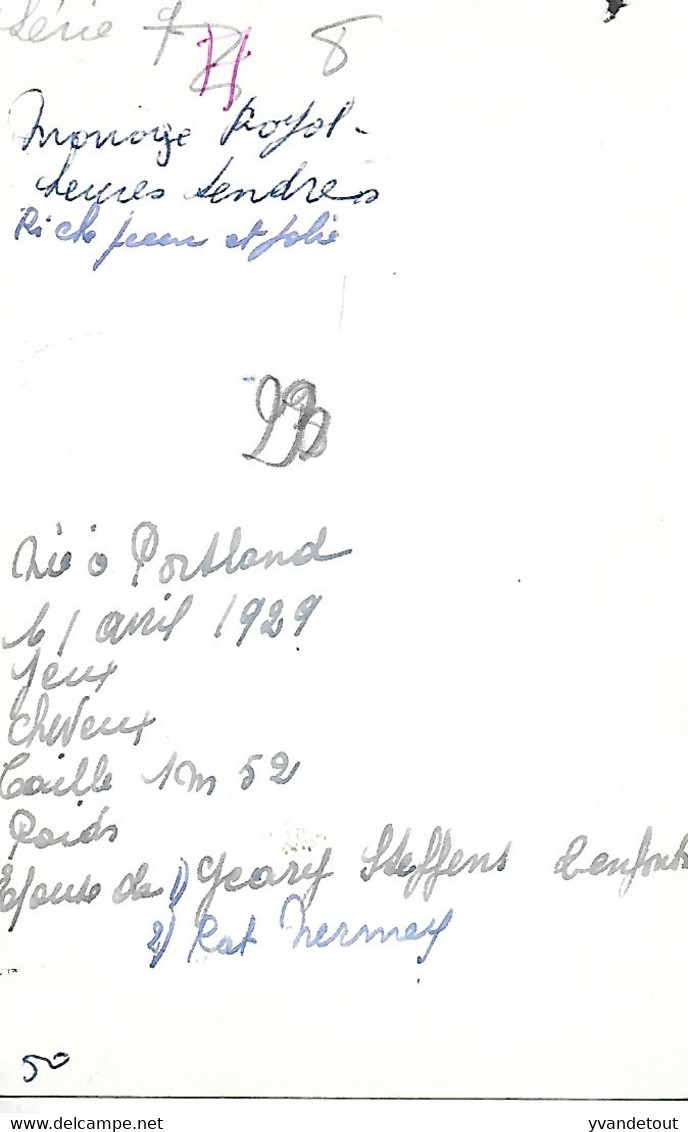 Série 7 8
Mariage Royal -
Heures tendres
Riche jeune et jolie
Née à Portland
le 1 avril 1929
Yeux
Cheveux
Taille 1m 52
Poids
Epouse de 1) Geary Steffens 2 enfants
2) Pat Nerney
50
yvandetout